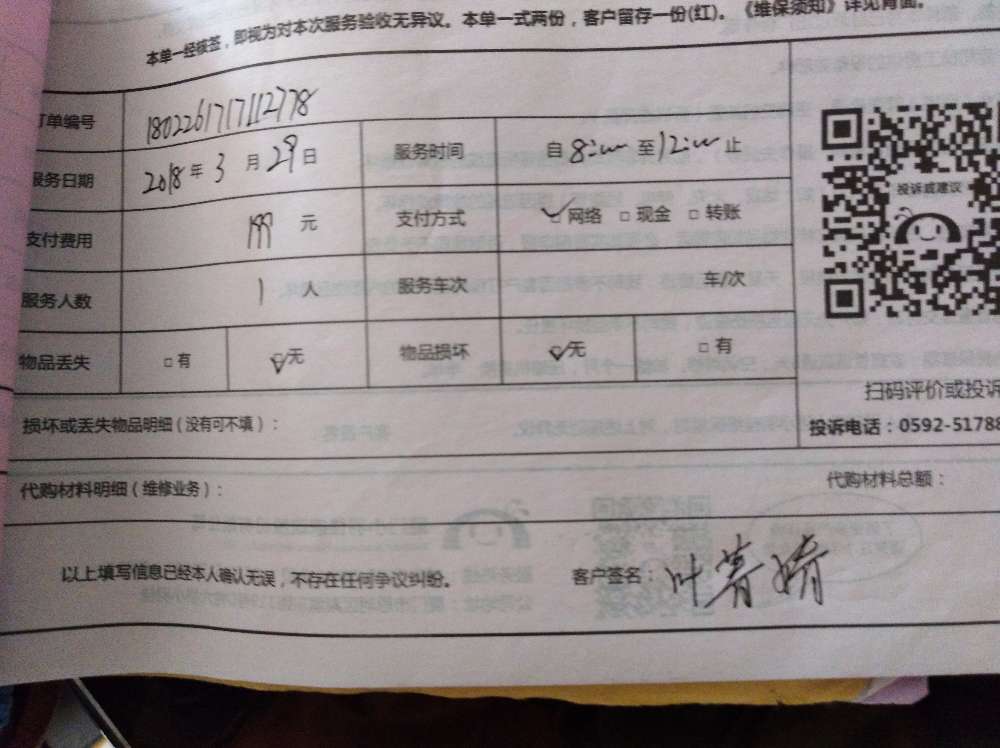 本单一经核签，即视为对本次服务验收无异议。本单一式两份，客户留存一份(红)。《维保须知》详见背面。
订单编号 1802261717112778
服务日期 2018年 3 月 29 日 服务时间 自 8:00 至 12:00 止
支付费用 199 元 支付方式 ☑网络 □ 现金 □ 转账
服务人数 1 人 服务车次 车/次
物品丢失 □ 有 ☑无 物品损坏 ☑无 □ 有
投诉或建议
扫码评价或投诉
损坏或丢失物品明细（没有可不填）：
投诉电话：0592-51788
代购材料明细（维修业务）：
代购材料总额：
以上填写信息已经本人确认无误，不存在任何争议纠纷。 客户签名：叶菁婧